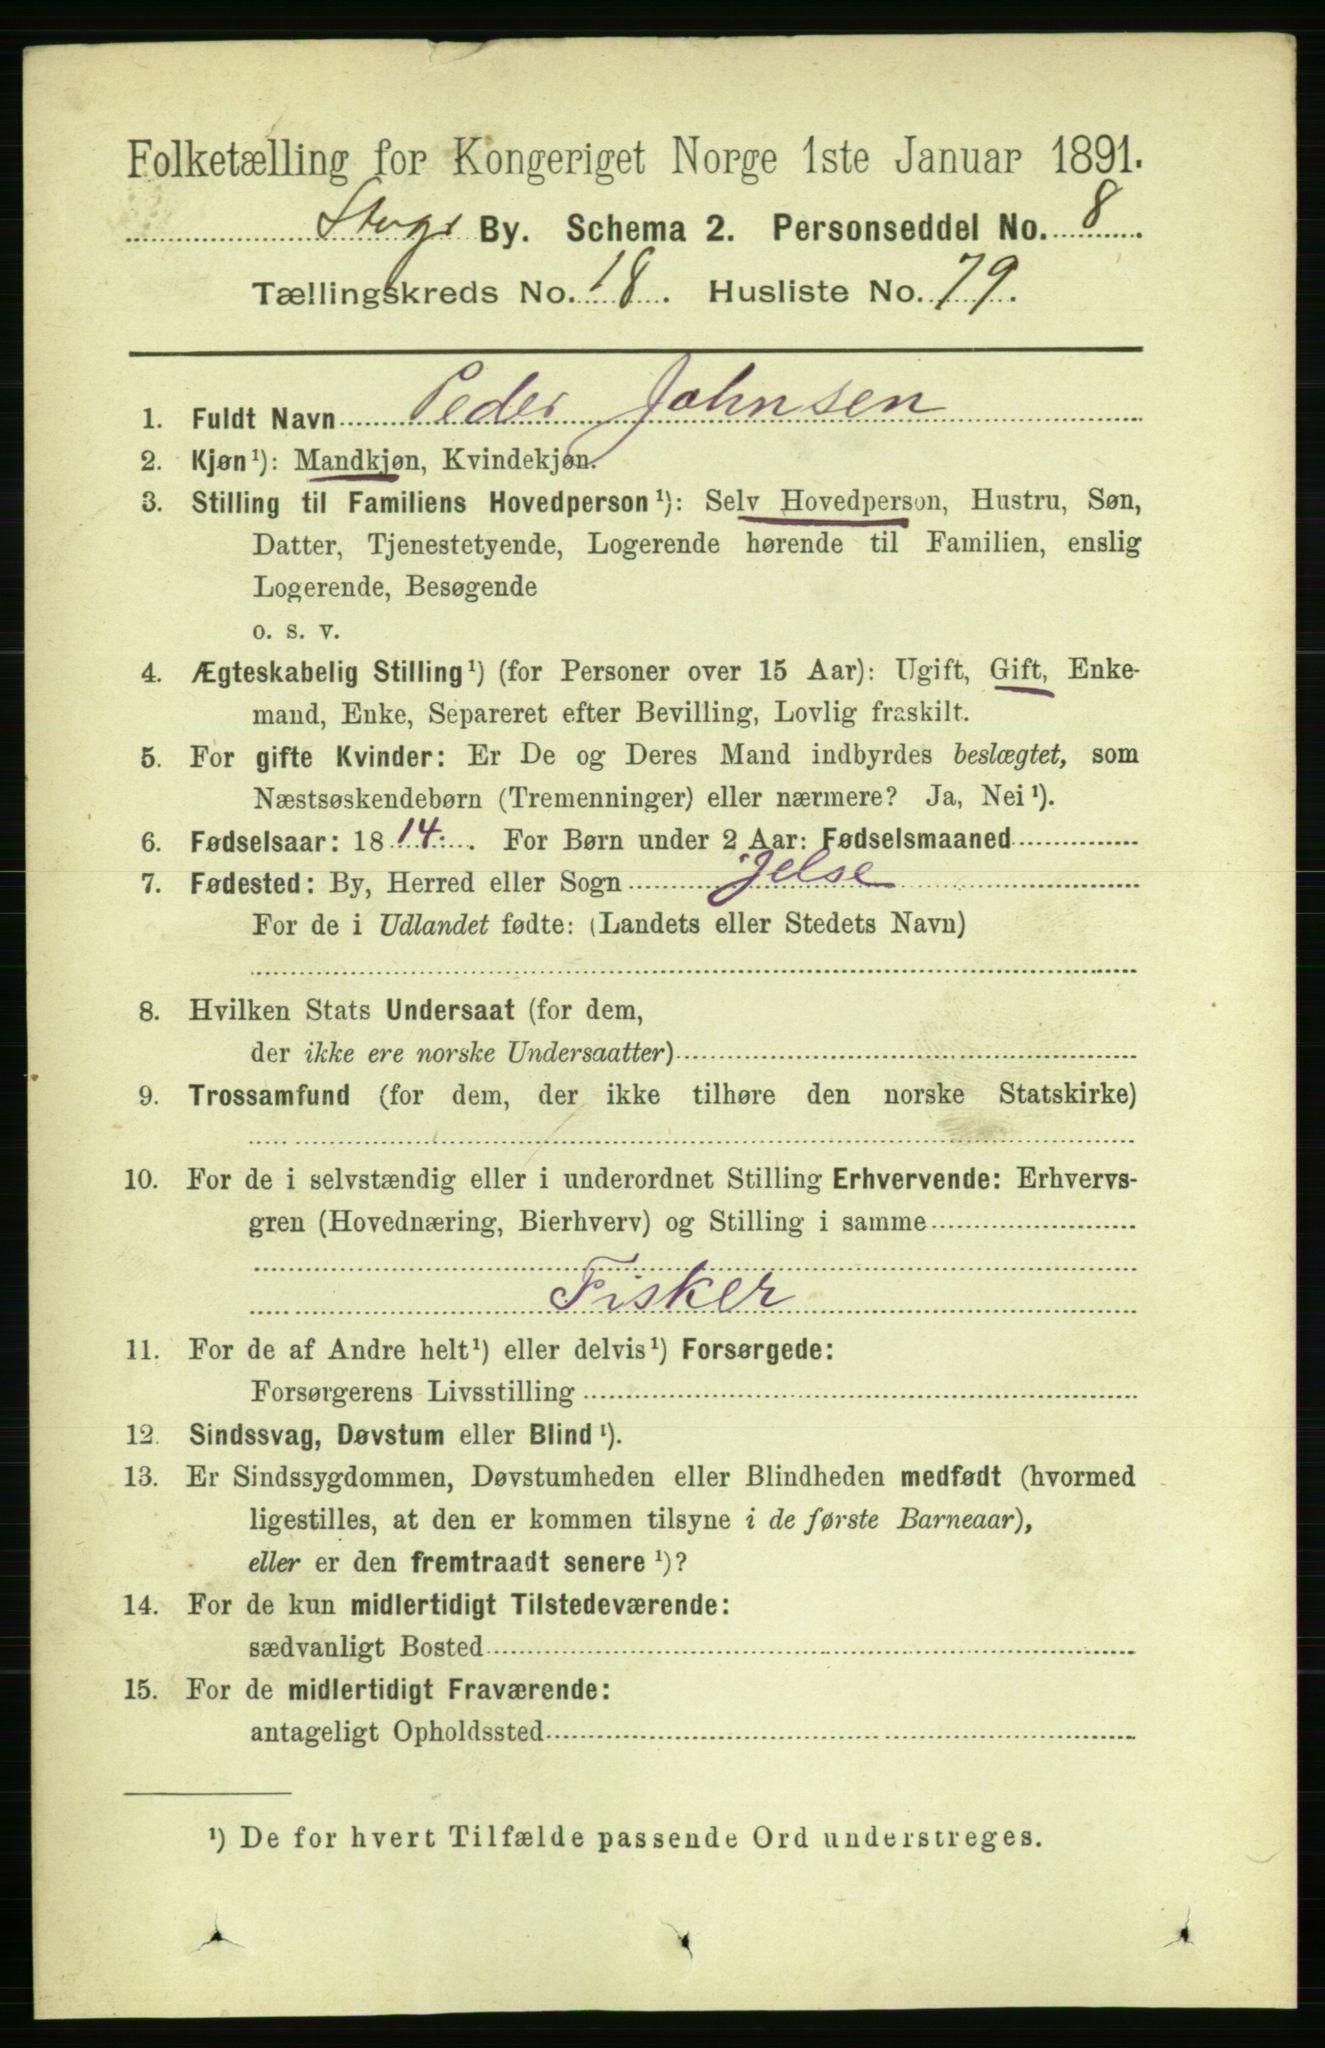 Folketælling for Kongeriget Norge 1ste Januar 1891.
By. Schema 2. Personseddel No. 8.
Tællingskreds No. 18. Husliste No. 79.
1. Fuldt Navn Peder Johnsen
2. Kjøn¹): Mandkjøn, Kvindekjøn.
3. Stilling til Familiens Hovedperson¹): Selv Hovedperson, Hustru, Søn,
Datter, Tjenestetyende, Logerende hørende til Familien, enslig
Logerende, Besøgende
o. s. v.
4. Ægteskabelig Stilling¹) (for Personer over 15 Aar): Ugift, Gift, Enke-
mand, Enke, Separeret efter Bevilling, Lovlig fraskilt.
5. For gifte Kvinder: Er De og Deres Mand indbyrdes beslægtet, som
Næstsøskendebørn (Tremenninger) eller nærmere? Ja, Nei¹).
6. Fødselsaar: 1814. For Børn under 2 Aar: Fødselsmaaned
7. Fødested: By, Herred eller Sogn Jelse
For de i Udlandet fødte: (Landets eller Stedets Navn)
8. Hvilken Stats Undersaat (for dem,
der ikke ere norske Undersaatter)
9. Trossamfund (for dem, der ikke tilhøre den norske Statskirke)
10. For de i selvstændig eller i underordnet Stilling Erhvervende: Erhvervs-
gren (Hovednæring, Bierhverv) og Stilling i samme
Fisker
11. For de af Andre helt¹) eller delvis¹) Forsørgede:
Forsørgerens Livsstilling
12. Sindssvag, Døvstum eller Blind¹).
13. Er Sindssygdommen, Døvstumheden eller Blindheden medfødt (hvormed
ligestilles, at den er kommen tilsyne i de første Barneaar),
eller er den fremtraadt senere¹)?
14. For de kun midlertidigt Tilstedeværende:
sædvanligt Bosted
15. For de midlertidigt Fraværende:
antageligt Opholdssted
¹) De for hvert Tilfælde passende Ord understreges.